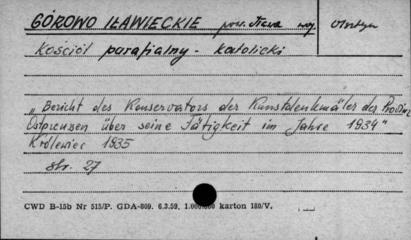 GÓROWO IŁAWIECKIE pow. Iława woj. Olsztyn
kościół parafialny - katolicki
„Bericht des Konservators der Kunstdenkmäler der Provinz
Ostpreuzen über seine Tätigkeit im Jahre 1934"
Królewiec 1935
str. 27
CWD B-15b Nr 515/P. GDA-809. 6.3.59. 1.000.000 karton 180/V.